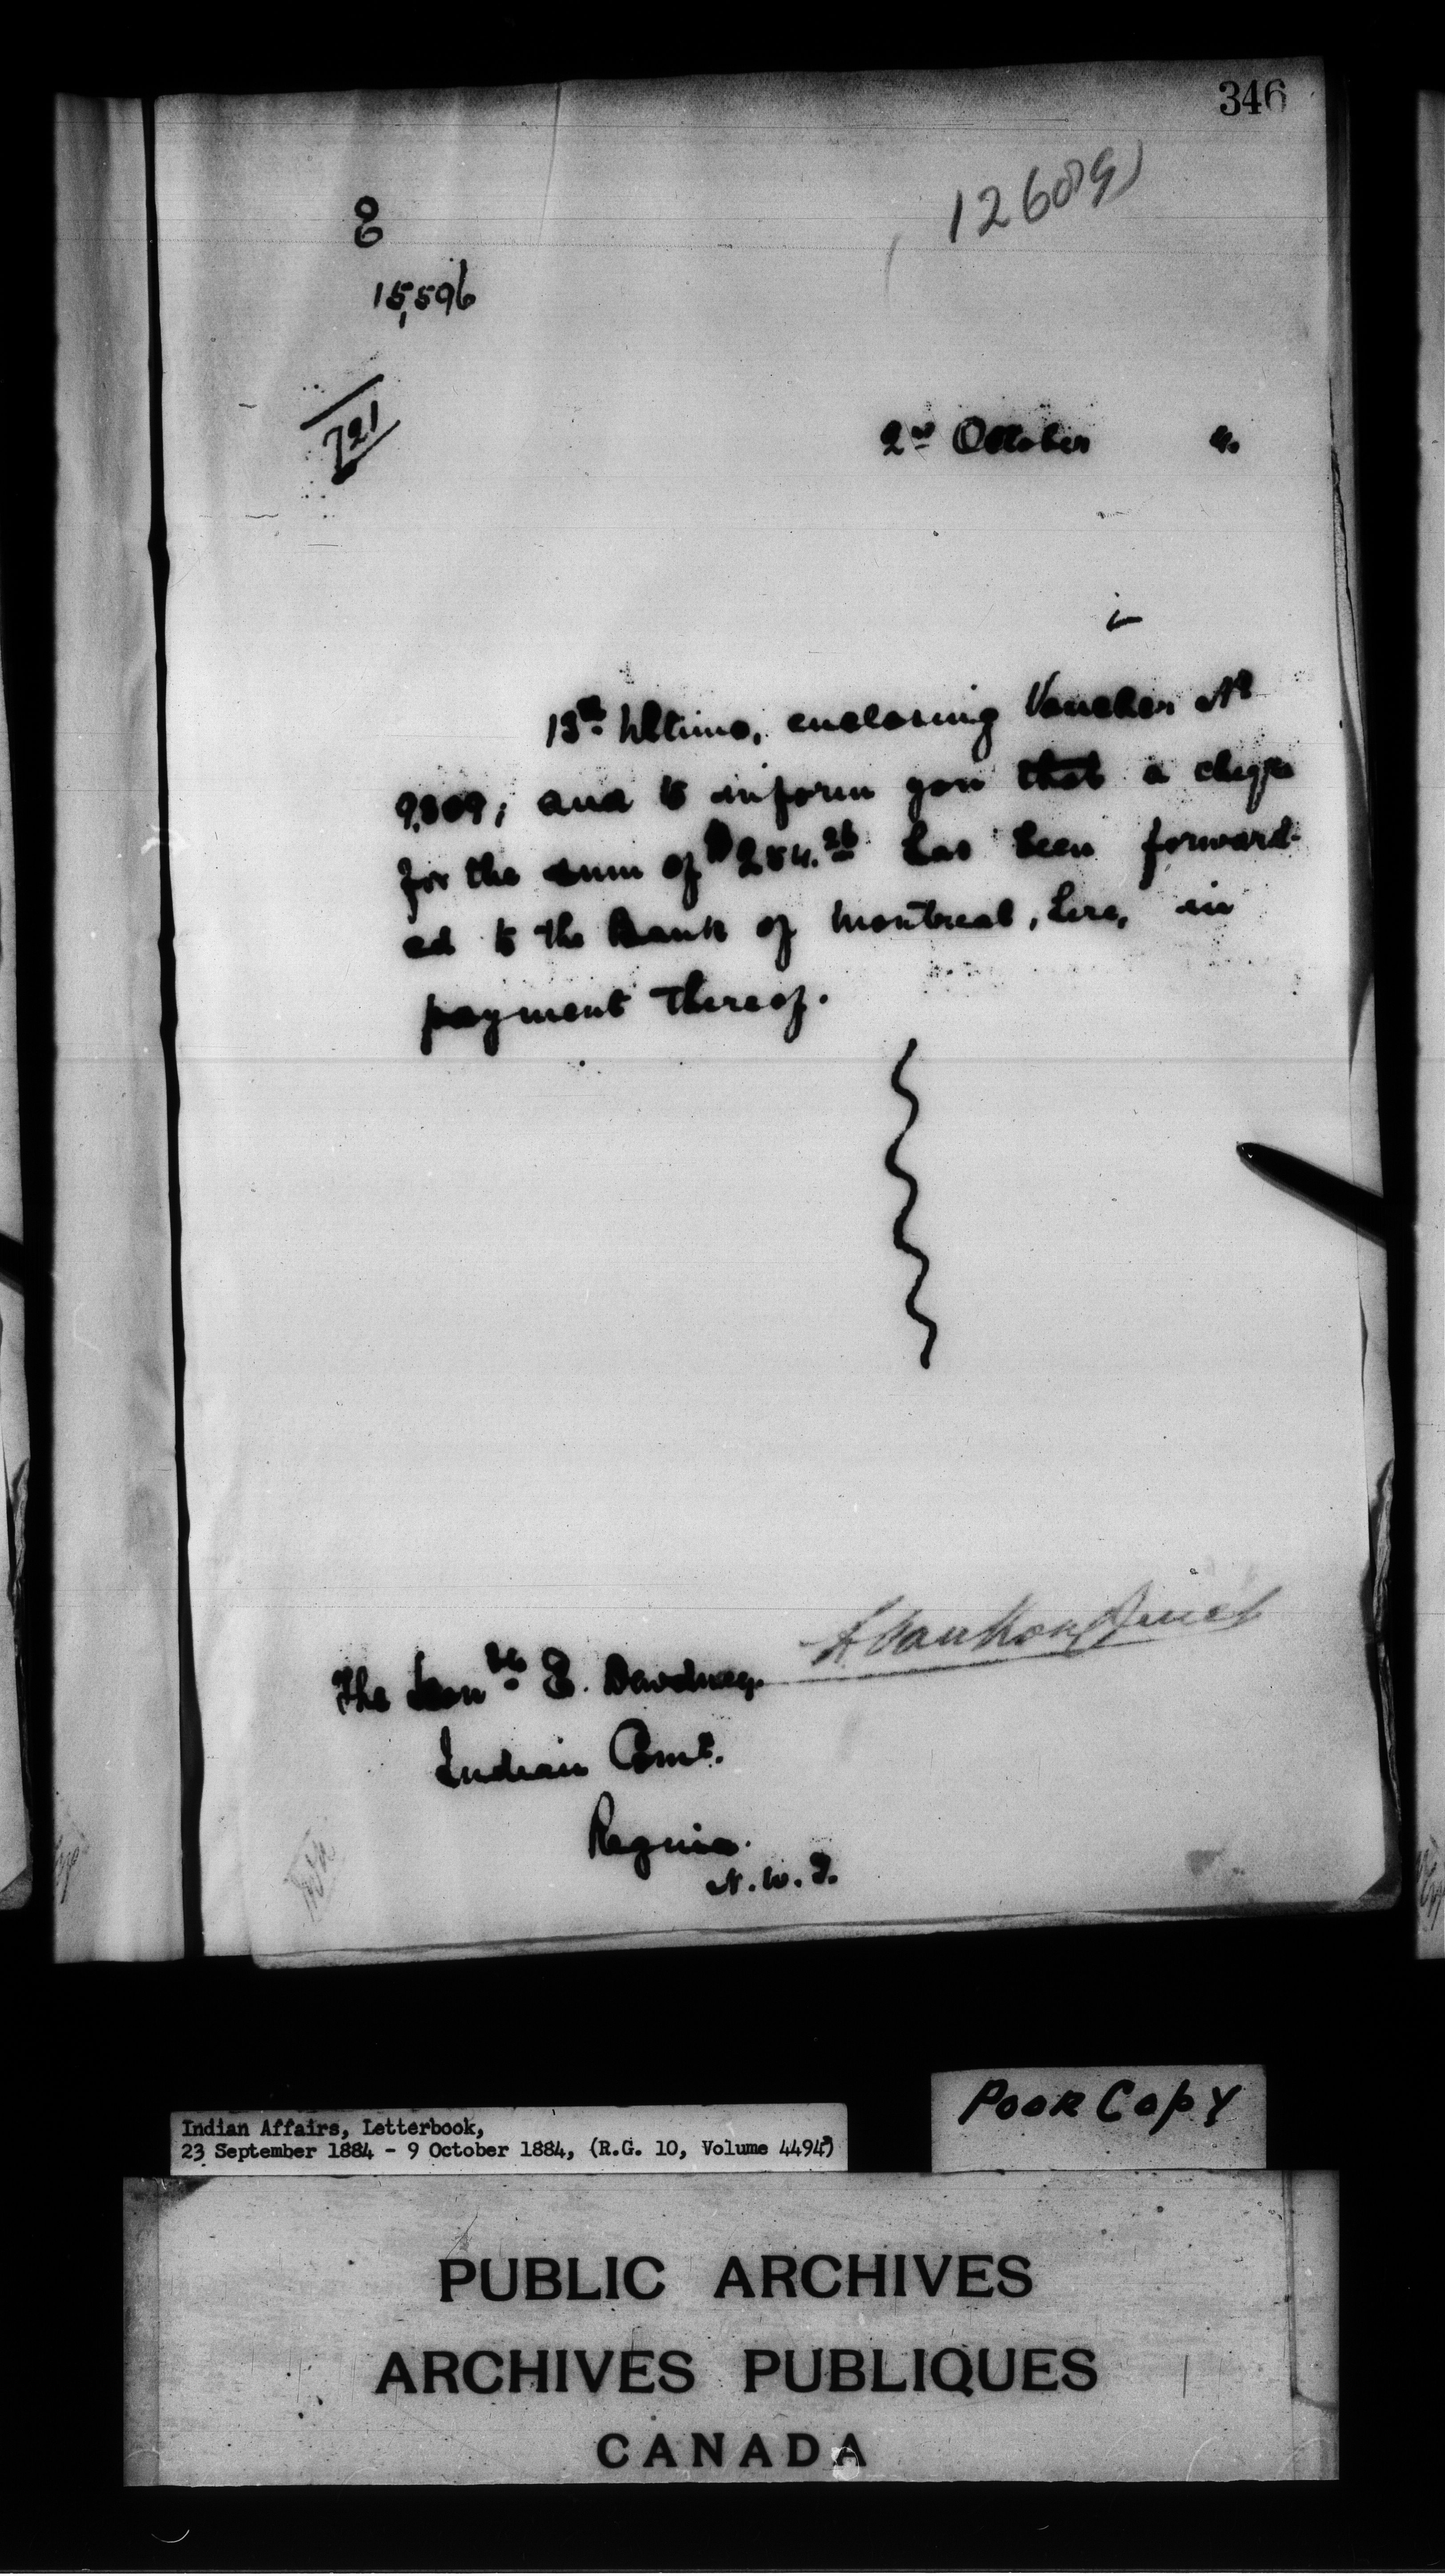 346
12689
15,596
721
2nd October 4.
13th Ultimo, enclosing Voucher No
9,809; and to inform you that a cheque
for the sum of $254.26 has been forward-
ed to the Bank of Montreal, here, in
payment thereof.
L. VanKoughnet
The Honble E. Dewdney
Indian Comr.
Regina.
N.W.T.
POOR COPY
Indian Affairs, Letterbook,
23 September 1884 - 9 October 1884, (R.G. 10, Volume 4494)
PUBLIC ARCHIVES
ARCHIVES PUBLIQUES
CANADA